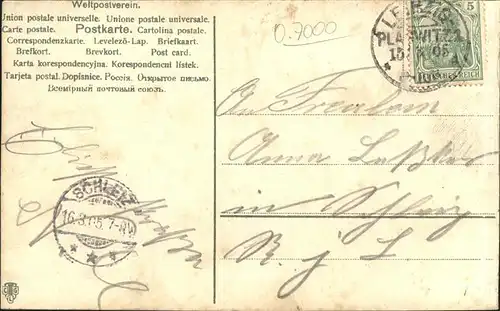 Weltpostverein.
Union postale universelle. Unione postale universale.
Carte postale. Postkarte. Cartolina postale.
Correspondenzkarte. Levelező-Lap. Briefkaart.
Brefkort. Brevkort. Post card.
Karta korespondencyjna. Korespondenční lístek.
Tarjeta postal. Dopisnice. Россія. Открытое письмо.
Всемірный почтовый союзъ.
0.7000
LEIPZIG-
PLAGWITZ
5
REICH
An Fräulein
Anna
in Schleiz
R. j. L.
SCHLEIZ
16.3.05. 7-8V.